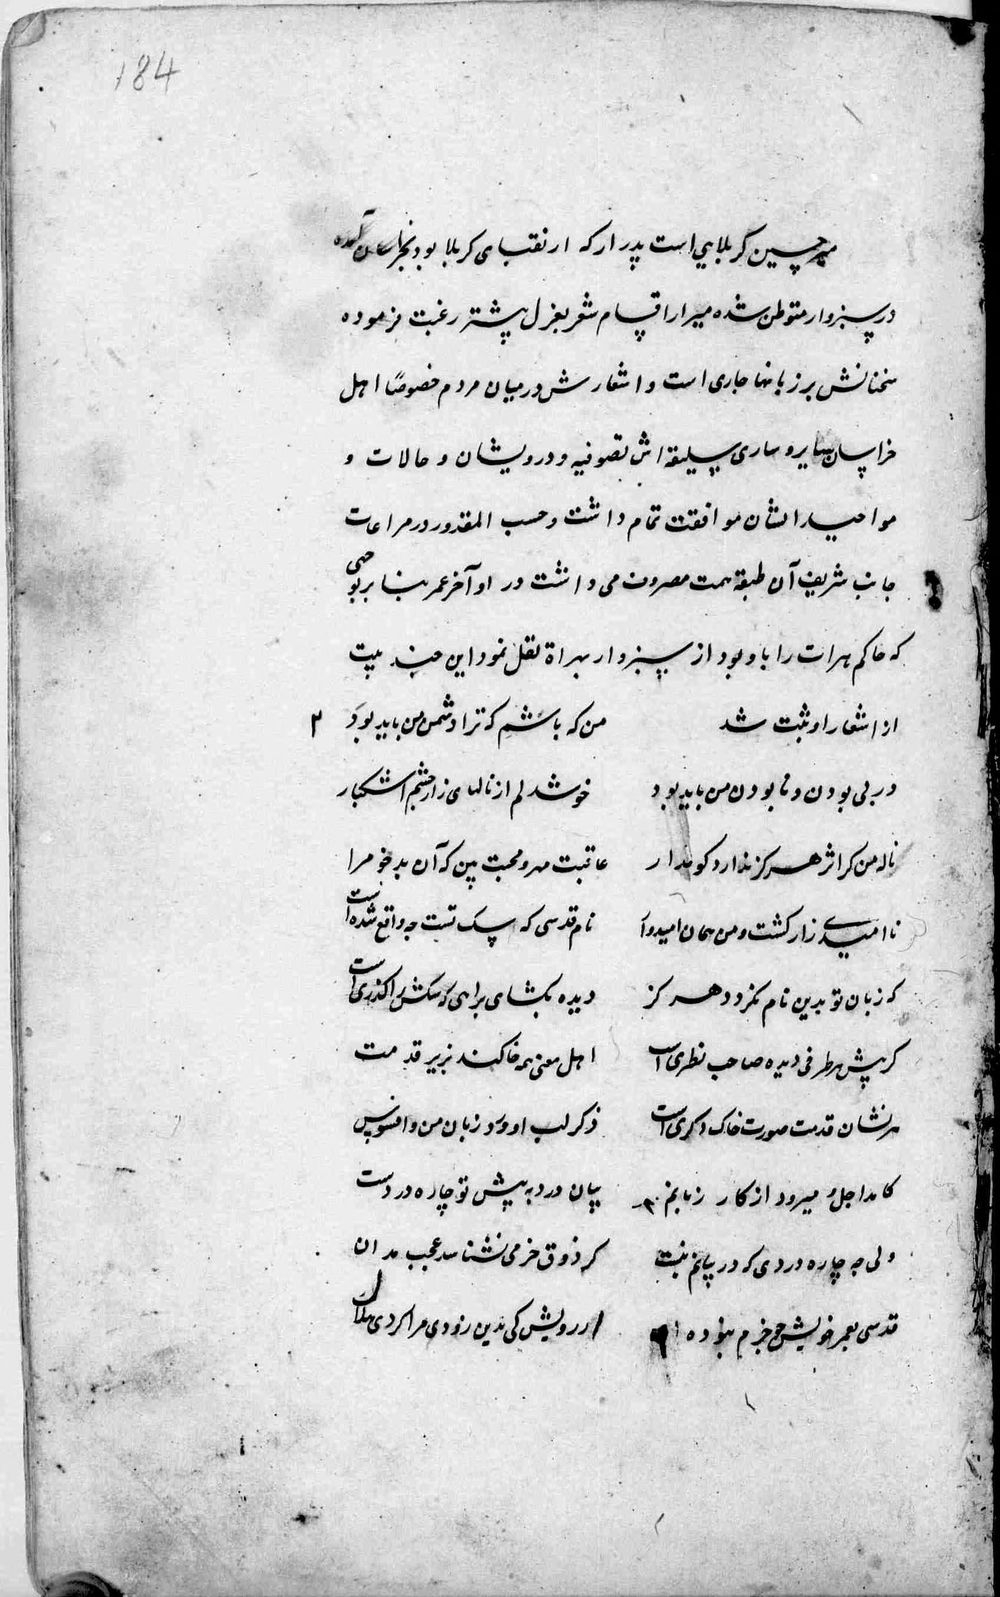 184
میر حسین کربلایی است پدر او که از نقبای کربلا بود بخراسان آمده
در سبزوار متوطن شده میر از اقسام شعر بغزل بیشتر رغبت فرموده
سخنانش بر زبانها جاری است و اشعارش در میان مردم خصوصاً اهل
خراسان سایر و ساری سلیقه اش بتصوفیه و درویشان و حالات و
مواجید ایشان موافقت تمام داشت و حسب المقدور در مراعات
جانب شریف آن طبقه همت مصروف می داشت در اوآخر عمر بنا بر توجهی
که حاکم هرات را باو بود از سبزوار بهراة نقل نمود این چند بیت
از اشعار او ثبت شد من که باشم که ترا دشمن من باید بود ۲
در پی بودن و نابودن من باید بود خوشدلم از نالهای زار و چشم اشکبار
ناله من کر اثر هرکز ندارد کو مدار عاقبت مهر و محبت بین که آن بدخو مرا
ناامیدی زار کشت و من همان امیدوار نام قدسی که سک تست چه واقع شده است
که زبان تو بدین نام نکردد هرکز دیده بکشای براهی که سکش را کذری است
کر پیش هر طرفی دیده صاحب نظری است اهل معنی همه خاکند بزیر قدمت
هر نشان قدمت صورت خاک دکری است ذکر لب او ورد زبان من و افسوس
کامد اجل و میرود از کار زبانم بیان درد به پیش تو چاره دردست
ولی چه چاره دردی که در بیانم نیست کر ذوق خرمی نشناسد عجب مدان
قدسی بعمر خویش چو خرم نبوده از رویش کی بدین زودی مرا کردی هلاک